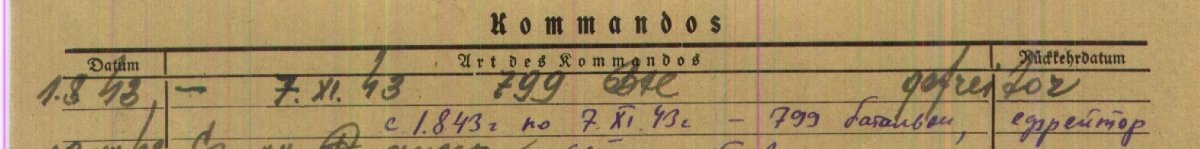 Kommandos
Datum Art des Kommandos Rückkehrdatum
1.8 43, — 7. XI. 43 799 gefreitor
с 1.8 43 г по 7. XI. 43 г — 799 батальон, ефрейтор